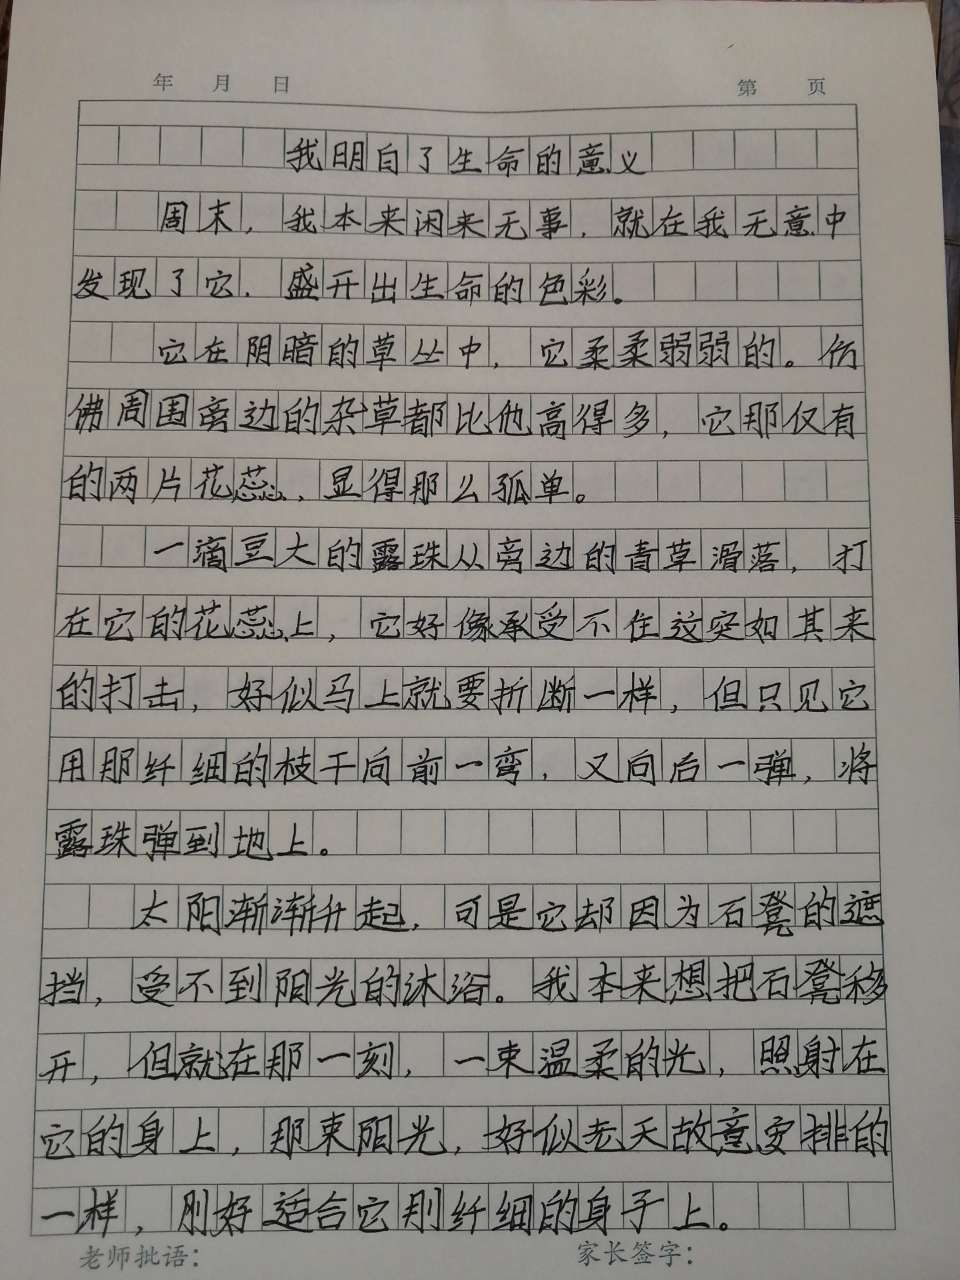 年 月 日 第 页
我明白了生命的意义
周末，我本来闲来无事，就在我无意中
发现了它．盛开出生命的色彩。
它在阴暗的草丛中，它柔柔弱弱的。仿
佛周围旁边的杂草都比他高得多，它那仅有
的两片花蕊，显得那么孤单。
一滴豆大的露珠从旁边的青草滑落，打
在它的花蕊上，它好像承受不住这突如其来
的打击，好似马上就要折断一样，但只见它
用那纤细的枝干向前一弯，又向后一弹，将
露珠弹到地上。
太阳渐渐升起，可是它却因为石凳的遮
挡，受不到阳光的沐浴。我本来想把石凳移
开，但就在那一刻，一束温柔的光，照射在
它的身上，那束阳光，好似老天故意安排的
一样，刚好适合它那纤细的身子上。
老师批语： 家长签字：